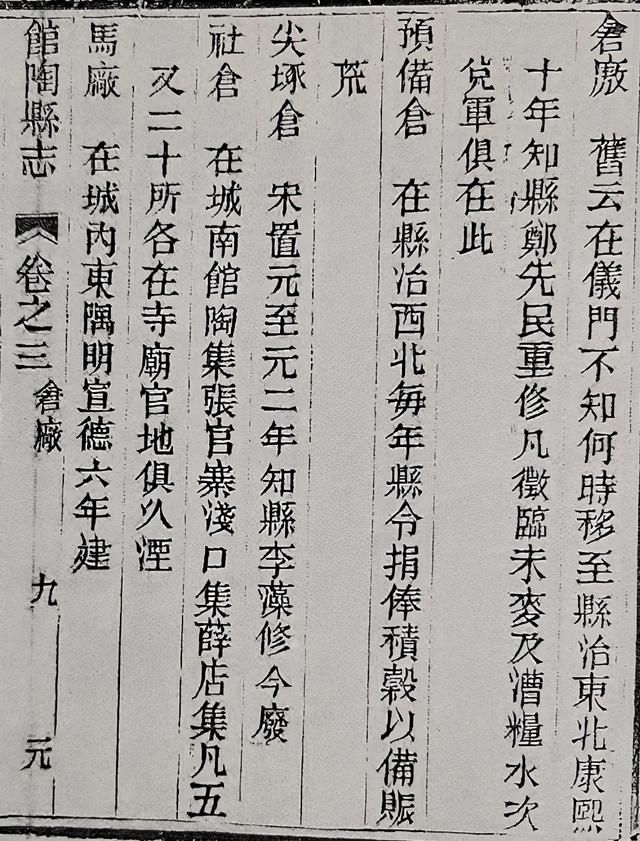 倉廒 舊云在儀門不知何時移至縣治東北康熙
十年知縣鄭先民重修凡徵臨未麥及漕糧水次
兌軍俱在此
預備倉 在縣治西北每年縣令捐俸積穀以備賑
荒
尖塚倉 宋置元至元二年知縣李藻修今廢
社倉 在城南館陶集張官寨淺口集薛店集凡五
又二十所各在寺廟官地俱久湮
馬廠 在城內東隅明宣德六年建
館陶縣志 卷之三 倉廠 九 元